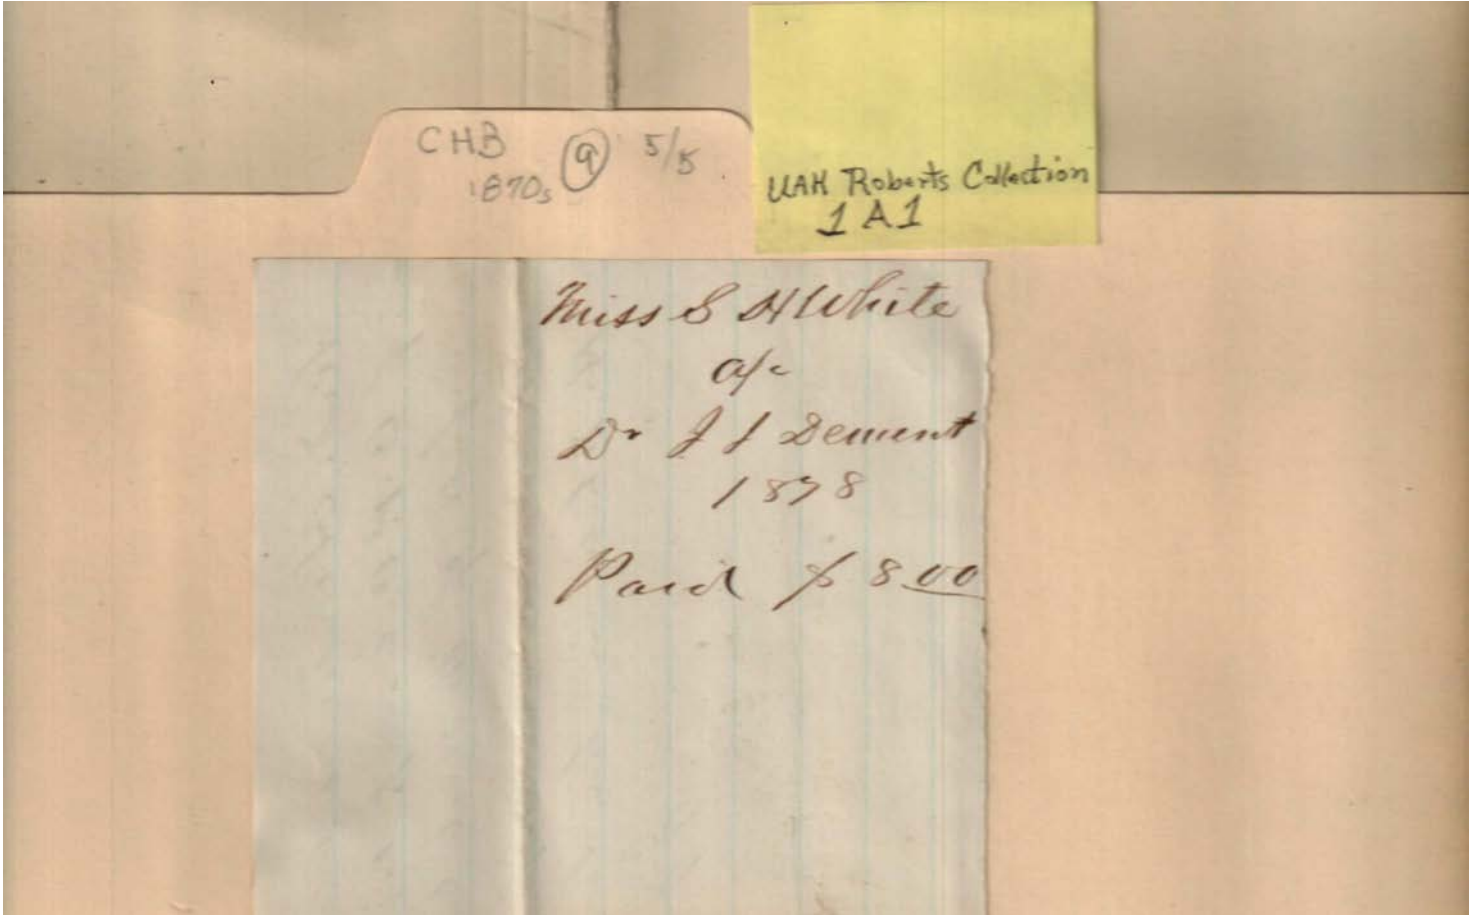 CHB 9 5/5
1870s
UAH Roberts Collection
1 A 1
Miss S H White
a/c
Dr J J Dement
1878
Paid $ 8.00